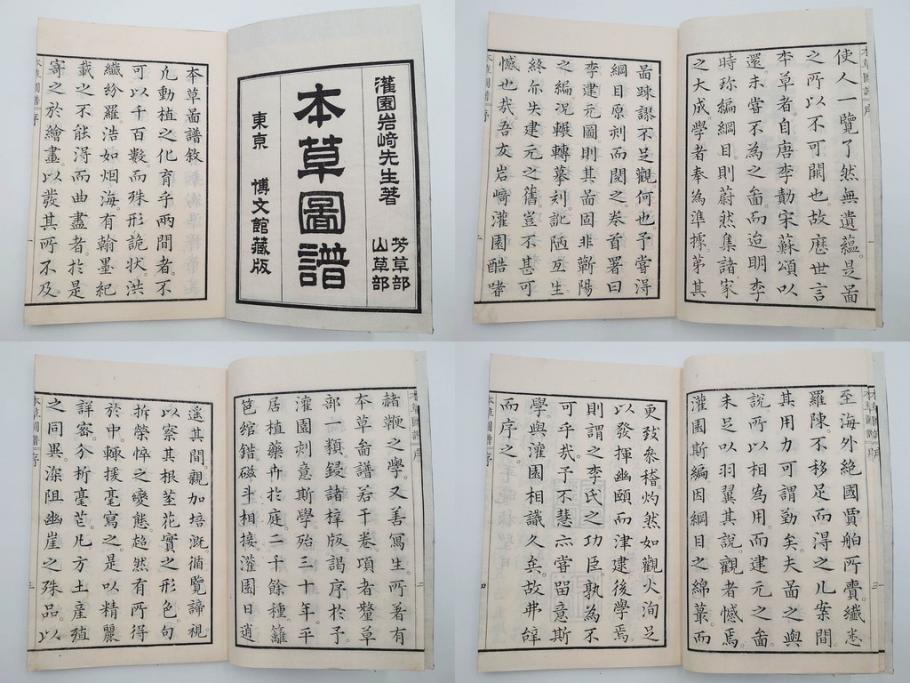 灌園岩﨑先生著
本草圖譜
芳草部
山草部
東亰 博文館藏版
本草啚譜敘
凢動植之化育乎兩間者不
可以千百數而殊形詭狀洪
纖紛羅浩如烟海有翰墨紀
載之不能淂而曲盡者於是
寄之於繪畫以發其所不及
本草圖譜 序
使人一覽了然無遺蘊是啚
之所以不可闕也故歴世言
本草者自唐李勣宋蘇頌以
還未嘗不為之啚而迨明李
時珎編綱目則蔚然集諸家
之大成學者奉為凖據苐其
啚疎謬不足觀何也予嘗得
綱目原刹而閲之巻首署曰
李建元圖則其啚固非蘄陽
之編况輾轉摹刻訛陋互生
終亦失建元之舊豈不甚可
憾也哉吾友岩﨑灌園酷嗜
本草圖譜 序
赭鞭之學又善冩生所著有
本草啚譜若干卷項者鏊草
部一類鋟諸梓版謁序於予
灌園刻意斯學殆三十年平
居植藥卉於庭二千餘種籬
笆綰錯磁斗相接灌園日逍
遙其間觀加培漑循覽諦視
以察其根莖花實之形色句
拆榮悴之變態超然有所得
於中輙援毫寫之是以精麗
詳審分析毫芒凢方土産殖
之同異深阻幽崖之殊品以
本草圖譜 序
至海外絕國賈舶所賷纖悉
羅陳不移足而得之几案間
其用力可謂勤矣夫啚之與
說所以相為用而建元之啚
未足以羽翼其説觀者憾焉
灌園斯編因綱目之綿蕞而
更攷叅稽灼然如觀火洵足
以發揮幽頤而津建後學焉
則謂之李氏之功臣孰為不
可乎哉予不慧亦嘗留意斯
學與灌園相識久矣故弗辝
而序之
本草圖譜 序